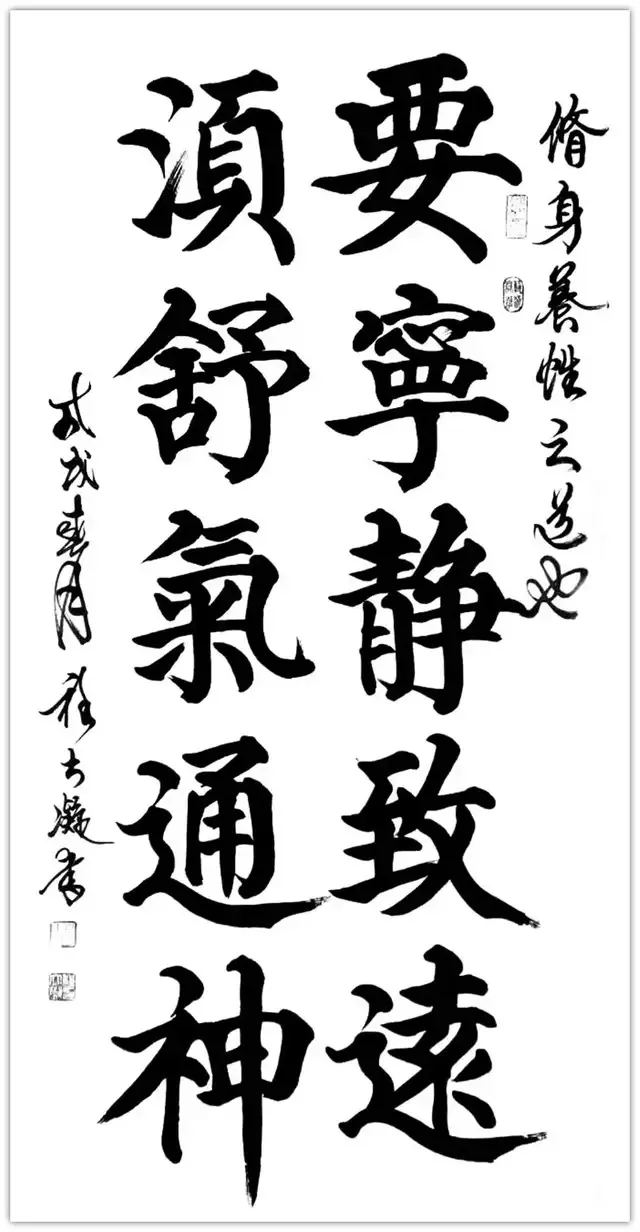 脩身養性之道也
要寧静致遠
湏舒氣通神
戊戌春月 凝書